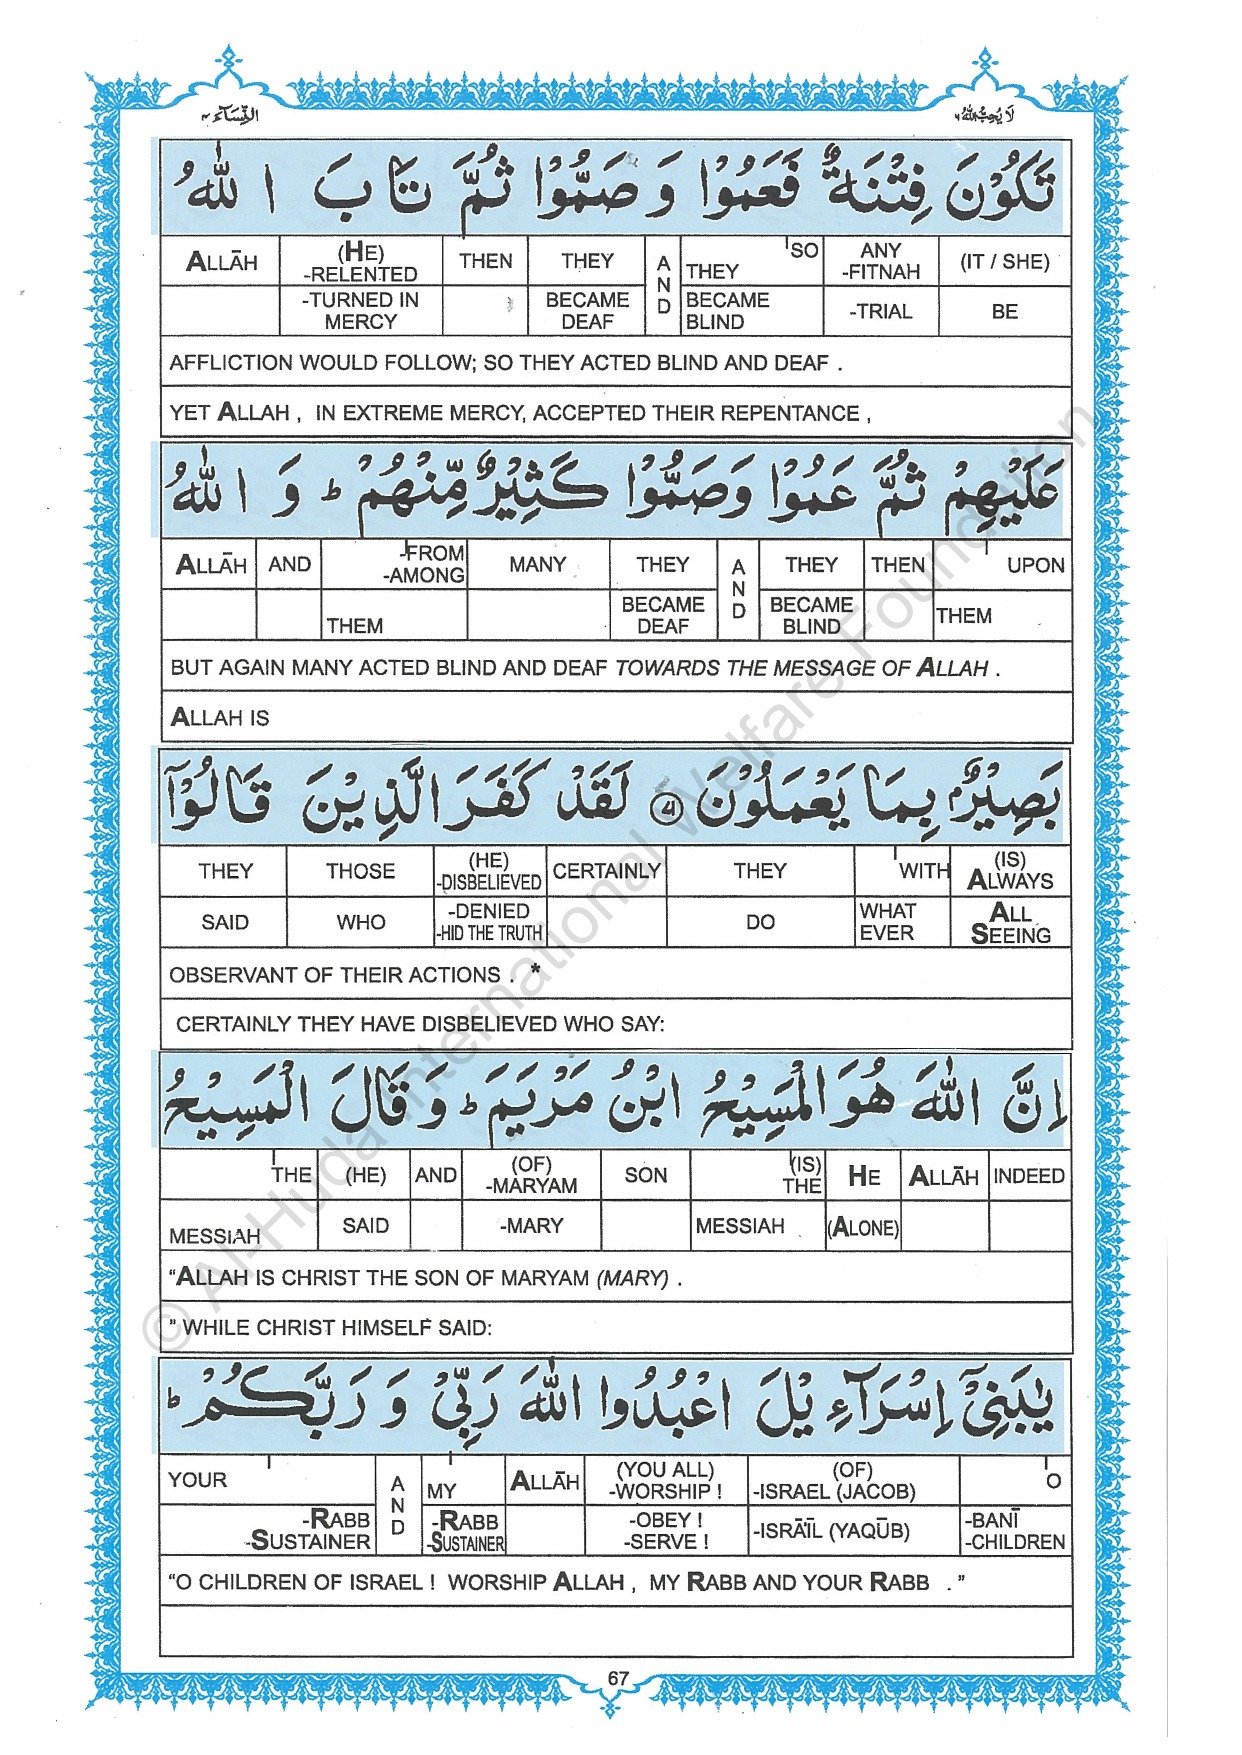 النساء ٤
لَا يُحِبُّ اللّٰهُ ٦
تَكُوْنَ فِتْنَةٌ فَعَمُوْا وَ صَمُّوْا ثُمَّ تَابَ اللّٰهُ
ALLĀH (HE) -RELENTED THEN THEY AND THEY SO ANY -FITNAH (IT / SHE)
-TURNED IN MERCY BECAME DEAF BECAME BLIND -TRIAL BE
AFFLICTION WOULD FOLLOW; SO THEY ACTED BLIND AND DEAF .
YET ALLAH , IN EXTREME MERCY, ACCEPTED THEIR REPENTANCE ,
عَلَيْهِمْ ثُمَّ عَمُوْا وَصَمُّوْا كَثِيْرٌ مِّنْهُمْ ؕ وَ اللّٰهُ
ALLĀH AND -FROM -AMONG MANY THEY AND THEY THEN UPON
THEM BECAME DEAF BECAME BLIND THEM
BUT AGAIN MANY ACTED BLIND AND DEAF TOWARDS THE MESSAGE OF ALLAH .
ALLAH IS
بَصِيْرٌۢ بِمَا يَعْمَلُوْنَ ﴿٧١﴾ لَقَدْ كَفَرَ الَّذِيْنَ قَالُوْۤا
THEY THOSE (HE) -DISBELIEVED CERTAINLY THEY WITH (IS) ALWAYS
SAID WHO -DENIED -HID THE TRUTH DO WHAT EVER ALL SEEING
OBSERVANT OF THEIR ACTIONS . *
CERTAINLY THEY HAVE DISBELIEVED WHO SAY:
اِنَّ اللّٰهَ هُوَ الْمَسِيْحُ ابْنُ مَرْيَمَ ؕ وَ قَالَ الْمَسِيْحُ
THE (HE) AND (OF) -MARYAM SON (IS) THE HE ALLĀH INDEED
MESSIAH SAID -MARY MESSIAH (ALONE)
“ALLAH IS CHRIST THE SON OF MARYAM (MARY) .
” WHILE CHRIST HIMSELF SAID:
يٰبَنِيْۤ اِسْرَآءِيْلَ اعْبُدُوا اللّٰهَ رَبِّيْ وَ رَبَّكُمْ ؕ
YOUR AND MY ALLĀH (YOU ALL) -WORSHIP ! (OF) -ISRAEL (JACOB) O
-RABB -SUSTAINER -RABB -SUSTAINER -OBEY ! -SERVE ! -ISRĀĪL (YAQŪB) -BANĪ -CHILDREN
“O CHILDREN OF ISRAEL ! WORSHIP ALLAH , MY RABB AND YOUR RABB . ”
67
© Al-Huda International Welfare Foundation